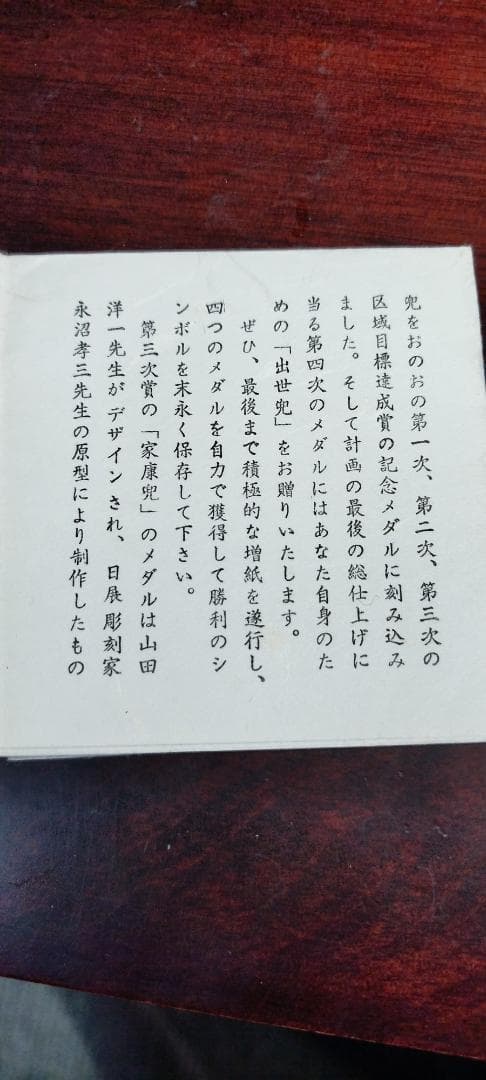 兜をおのおの第一次、第二次、第三次の
区域目標達成賞の記念メダルに刻み込み
ました。そして計画の最後の総仕上げに
当る第四次のメダルにはあなた自身のた
めの「出世兜」をお贈りいたします。
ぜひ、最後まで積極的な増紙を遂行し、
四つのメダルを自力で獲得して勝利のシ
ンボルを末永く保存して下さい。
第三次賞の「家康兜」のメダルは山田
洋一先生がデザインされ、日展彫刻家
永沼孝三先生の原型により制作したもの